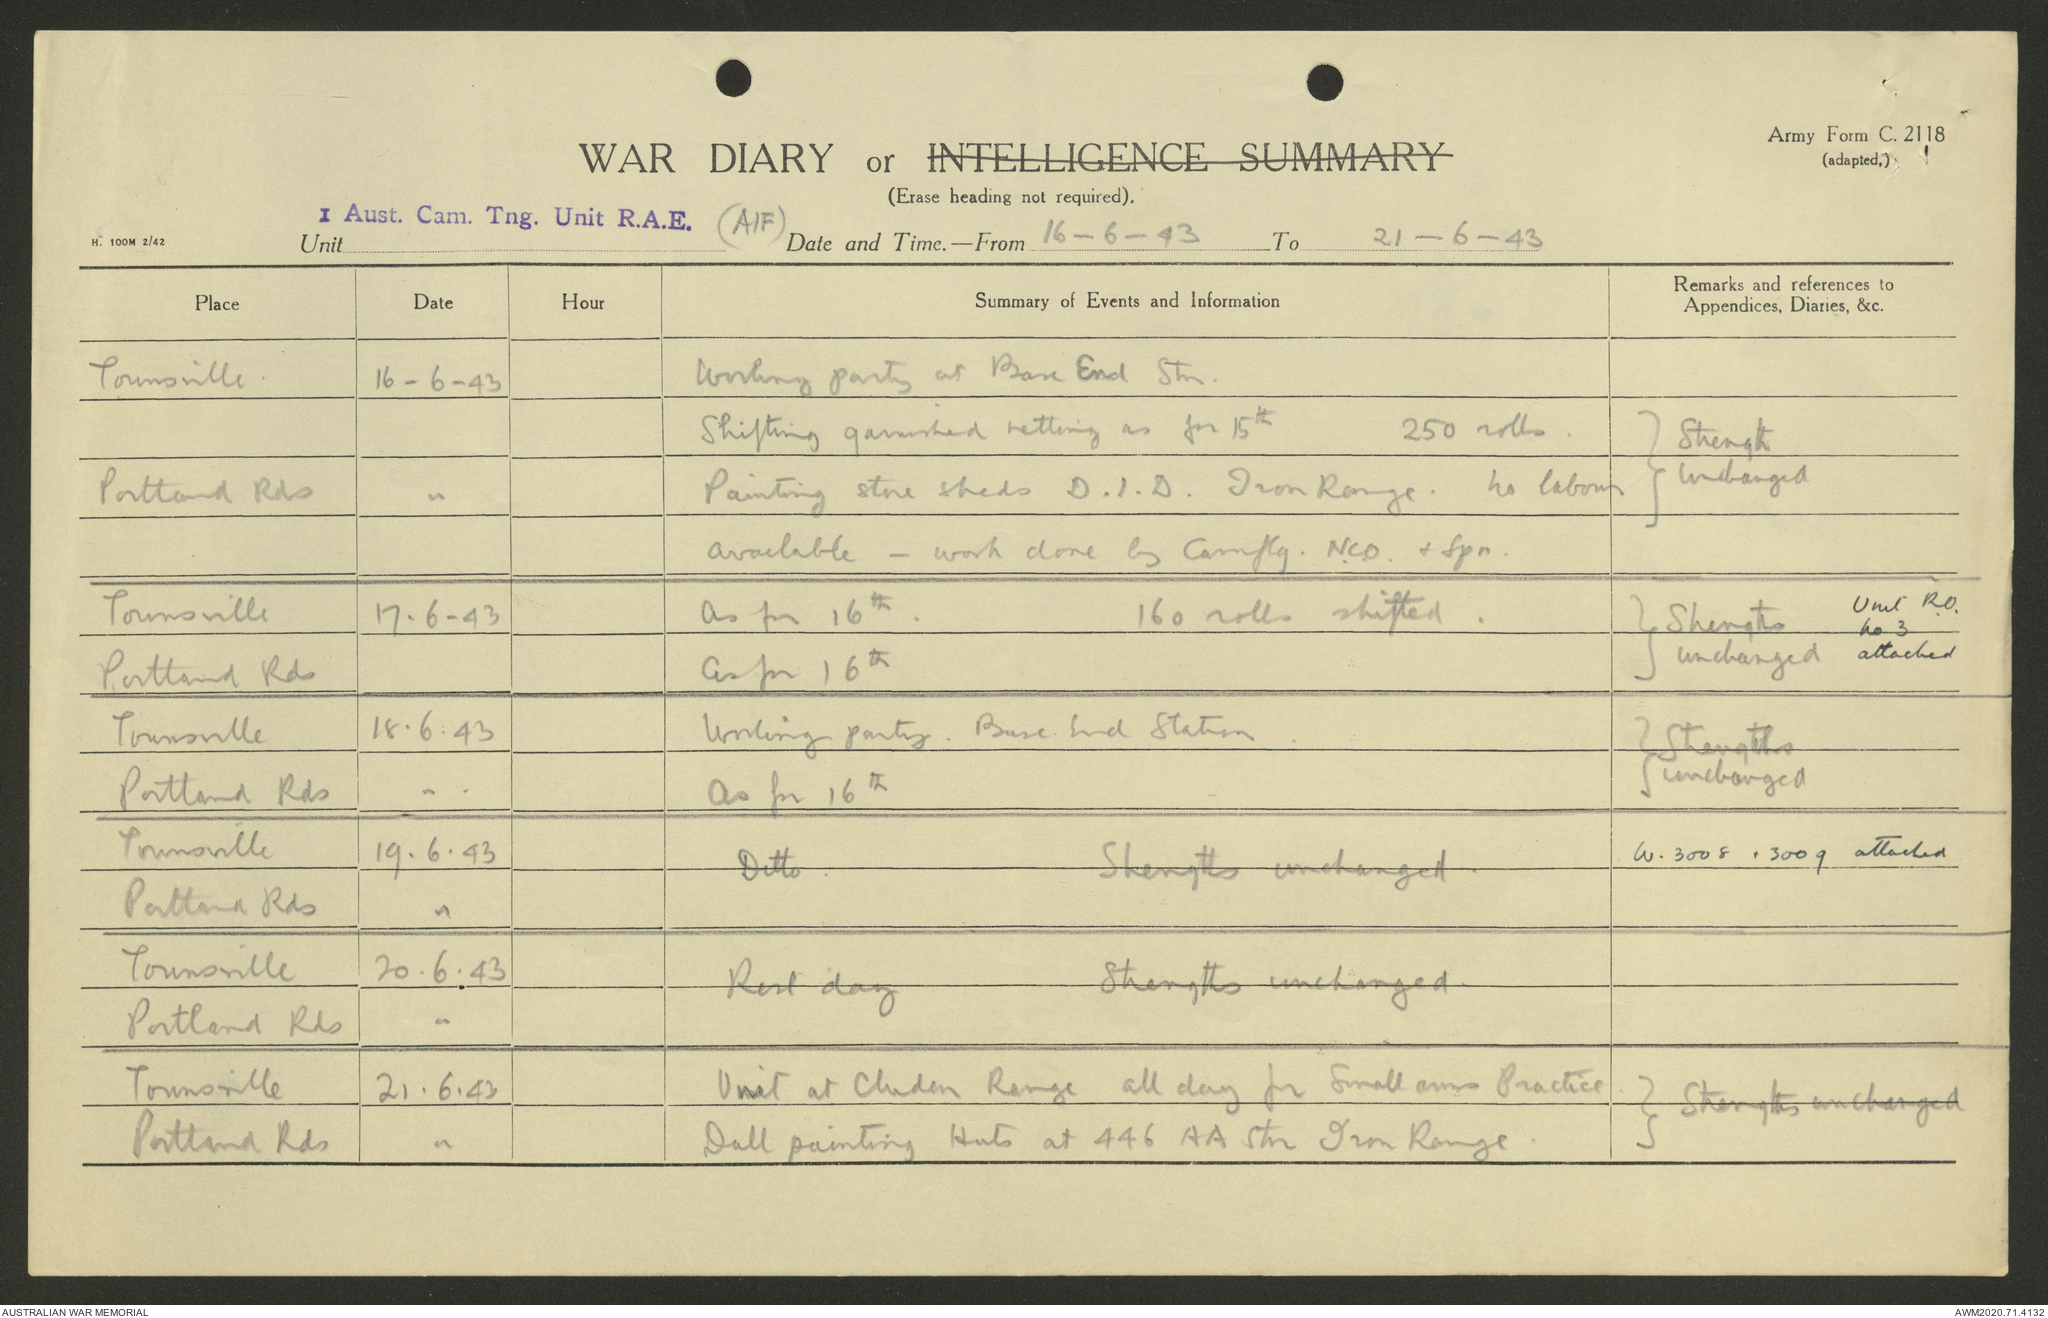 Army Form C. 2118
(adapted,)
WAR DIARY or INTELLIGENCE SUMMARY
(Erase heading not required).
H. 100M 2/42
Unit 1 Aust. Cam. Tng. Unit R.A.E. (AIF) Date and Time.—From 16-6-43 To 21-6-43
Place Date Hour Summary of Events and Information Remarks and references to
Appendices, Diaries, &c.
Townsville 16-6-43 Working party at Base End Stn.
Shifting garnished netting as for 15th 250 rolls. } Strength
Portland Rds " Painting store sheds D.I.D. Iron Range. No labour } unchanged
available - work done by Camflg. N.C.O. + Spr.
Townsville 17.6-43 As for 16th. 160 rolls shifted. } Strengths Unit R.O.
No 3
Portland Rds As for 16th } unchanged attached
Townsville 18.6.43 Working party. Base End Station. } Strengths
Portland Rds " As for 16th } unchanged
Townsville 19.6.43 Ditto. Strengths unchanged. W.3008 + 3009 attached
Portland Rds "
Townsville 20.6.43 Rest day Strengths unchanged.
Portland Rds "
Townsville 21.6.43 Unit at Cluden Range all day for Small arms Practice. } Strengths unchanged
Portland Rds " Dull painting Huts at 446 AA Stn Iron Range.
AUSTRALIAN WAR MEMORIAL AWM2020.71.4132